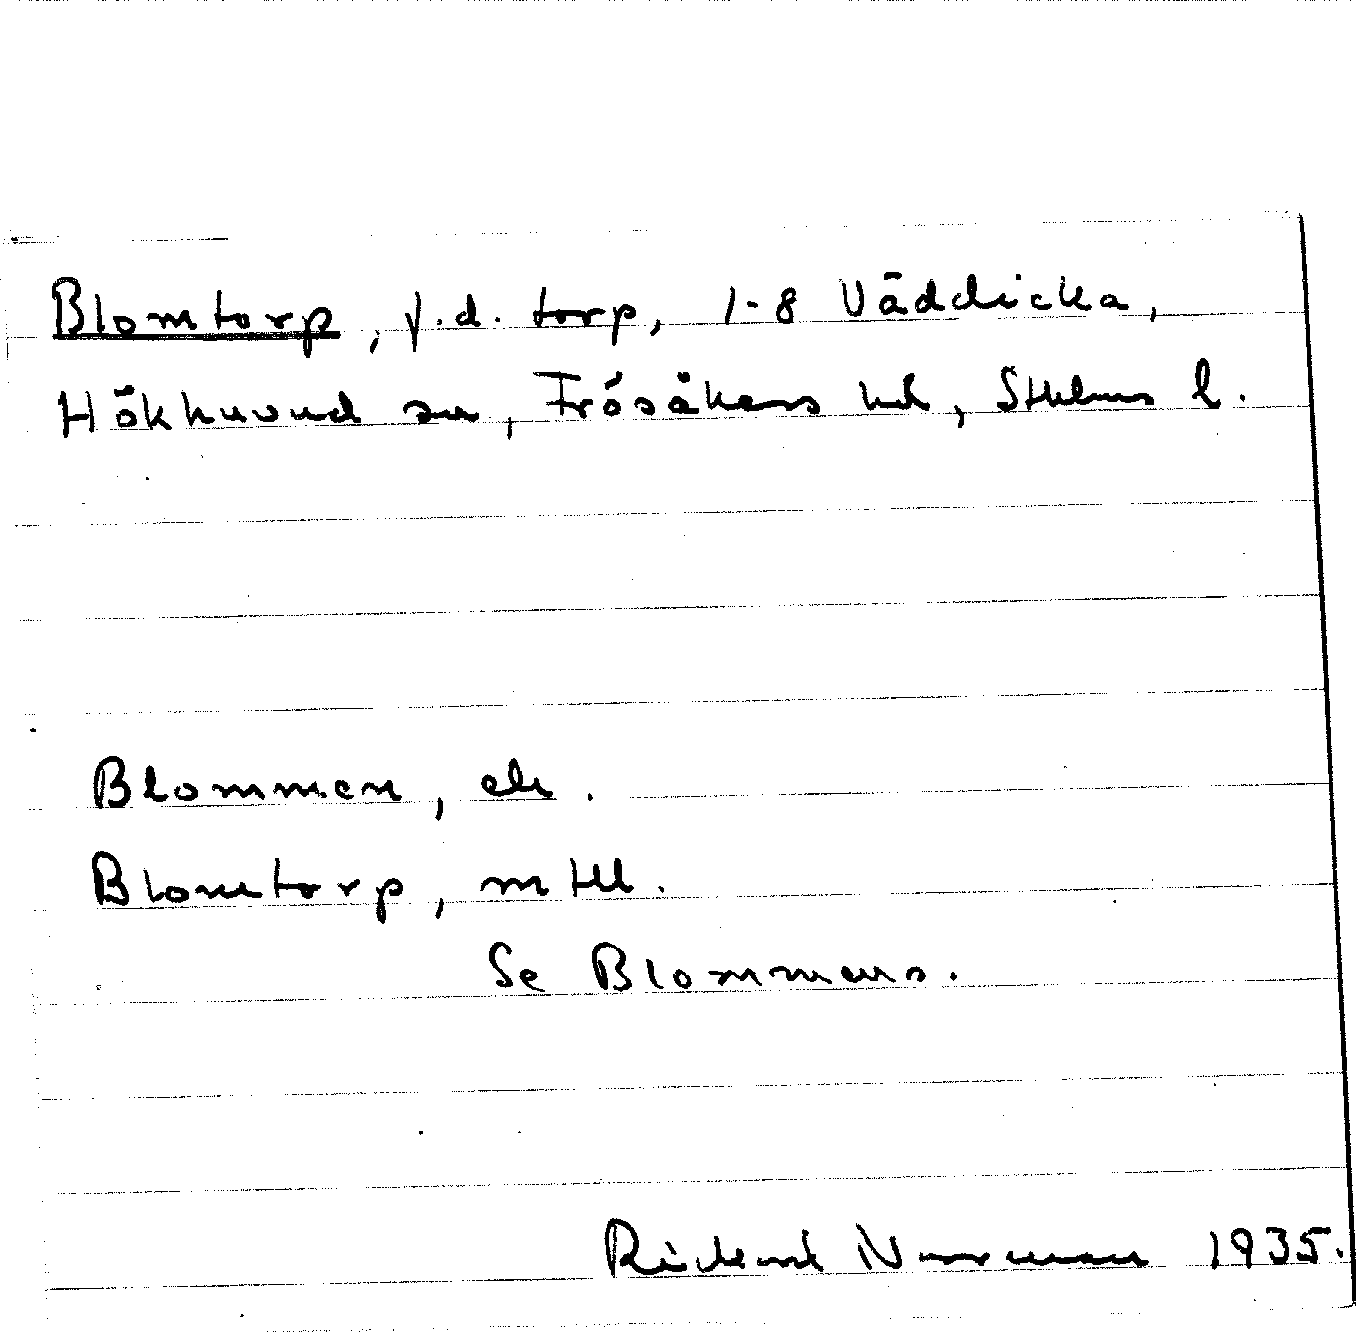 Blomtorp, f.d. torp, 1-8 Väddicka,
Hökhuvud sn, Frösåkers hd, Sthlms l.
Blommen, ek.
Blomtorp, mtll.
Se Blommens.
Rickard Norrman 1935.